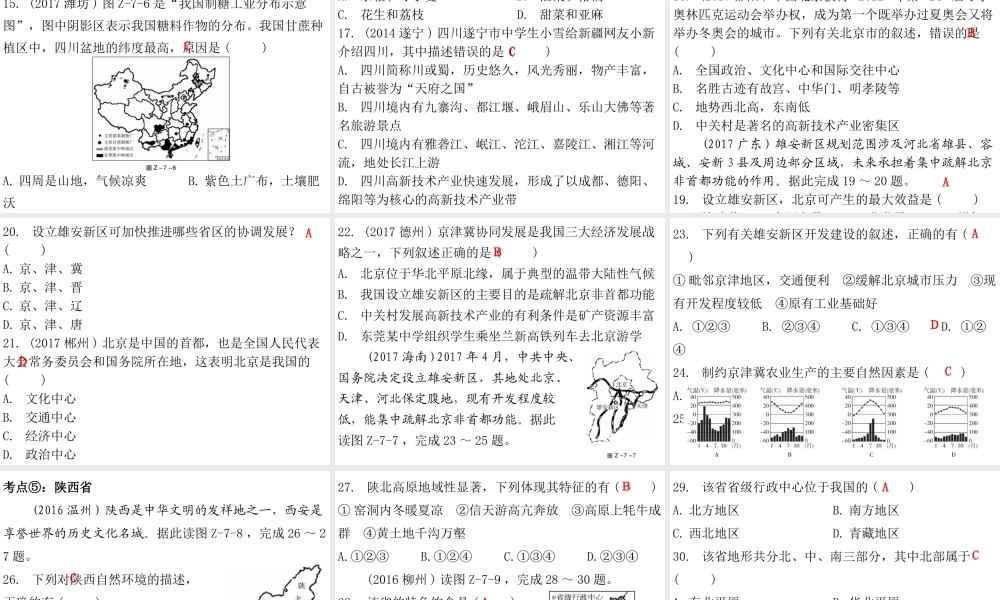 15. (2017 潍坊) 图 Z-7-6 是“我国制糖工业分布示意
图”，图中阴影区表示我国糖料作物的分布。我国甘蔗种
植区中，四川盆地的纬度最高，原因是 (　C　)
图 Z-7-6
A. 四周是山地，气候凉爽　　B. 紫色土广布，土壤肥
沃
C. 花生和荔枝　　D. 甜菜和亚麻
17. (2014 遂宁) 四川遂宁市中学生小雪给新疆网友小新
介绍四川，其中描述错误的是 (　C　)
A. 四川简称川或蜀，历史悠久，风光秀丽，物产丰富，
自古被誉为“天府之国”
B. 四川境内有九寨沟、都江堰、峨眉山、乐山大佛等著
名旅游景点
C. 四川境内有雅砻江、岷江、沱江、嘉陵江、湘江等河
流，地处长江上游
D. 四川高新技术产业快速发展，形成了以成都、德阳、
绵阳等为核心的高新技术产业带
奥林匹克运动会举办权，成为第一个既举办过夏奥会又将
举办冬奥会的城市。下列有关北京市的叙述，错误的是
(　B　)
A. 全国政治、文化中心和国际交往中心
B. 名胜古迹有故宫、中华门、明孝陵等
C. 地势西北高，东南低
D. 中关村是著名的高新技术产业密集区
(2017 广东) 雄安新区规划范围涉及河北省雄县、容
城、安新 3 县及周边部分区域，未来承担着集中疏解北京
非首都功能的作用。据此完成 19 ～ 20 题。
19. 设立雄安新区，北京可产生的最大效益是 (　A　)
20. 设立雄安新区可加快推进哪些省区的协调发展？ A
(　　)
A. 京、津、冀
B. 京、津、晋
C. 京、津、辽
D. 京、津、唐
21. (2017 郴州) 北京是中国的首都，也是全国人民代表
大会常务委员会和国务院所在地，这表明北京是我国的
(　D　)
A. 文化中心
B. 交通中心
C. 经济中心
D. 政治中心
22. (2017 德州) 京津冀协同发展是我国三大经济发展战
略之一，下列叙述正确的是 (　B　)
A. 北京位于华北平原北缘，属于典型的温带大陆性气候
B. 我国设立雄安新区的主要目的是疏解北京非首都功能
C. 中关村发展高新技术产业的有利条件是矿产资源丰富
D. 东莞某中学组织学生乘坐兰新高铁列车去北京游学
(2017 海南) 2017 年 4 月，中共中央、
国务院决定设立雄安新区，其地处北京、
天津、河北保定腹地，现有开发程度较
低，能集中疏解北京非首都功能。据此
读图 Z-7-7，完成 23 ～ 25 题。
北京
天津
图 Z-7-7
23. 下列有关雄安新区开发建设的叙述，正确的有 ( A
)
① 毗邻京津地区，交通便利　②缓解北京城市压力　③现
有开发程度较低　④原有工业基础好
A. ①②③　　B. ②③④　　C. ①③④　D D. ①②
④
24. 制约京津冀农业生产的主要自然因素是 (　C　)
A.
气温(℃) 降水量(毫米) 气温(℃) 降水量(毫米) 气温(℃) 降水量(毫米) 气温(℃) 降水量(毫米)
A　B　C　D
考点⑤：陕西省
(2016 温州) 陕西是中华文明的发祥地之一，西安是
享誉世界的历史文化名城。据此读图 Z-7-8，完成 26 ～ 2
7 题。
26. 下列对陕西自然环境的描述，
C
陕
27. 陕北高原地域性显著，下列体现其特征的有 ( B　)
① 窑洞内冬暖夏凉　②信天游高亢奔放　③高原上牦牛成
群　④黄土地千沟万壑
A. ①②③　　B. ①②④　　C. ①③④　　D. ②③④
(2016 柳州) 读图 Z-7-9，完成 28 ～ 30 题。
省级行政中心
29. 该省省级行政中心位于我国的 ( A　)
A. 北方地区　　B. 南方地区
C. 西北地区　　D. 青藏地区
30. 该省地形共分北、中、南三部分，其中北部属于 C
(　　)